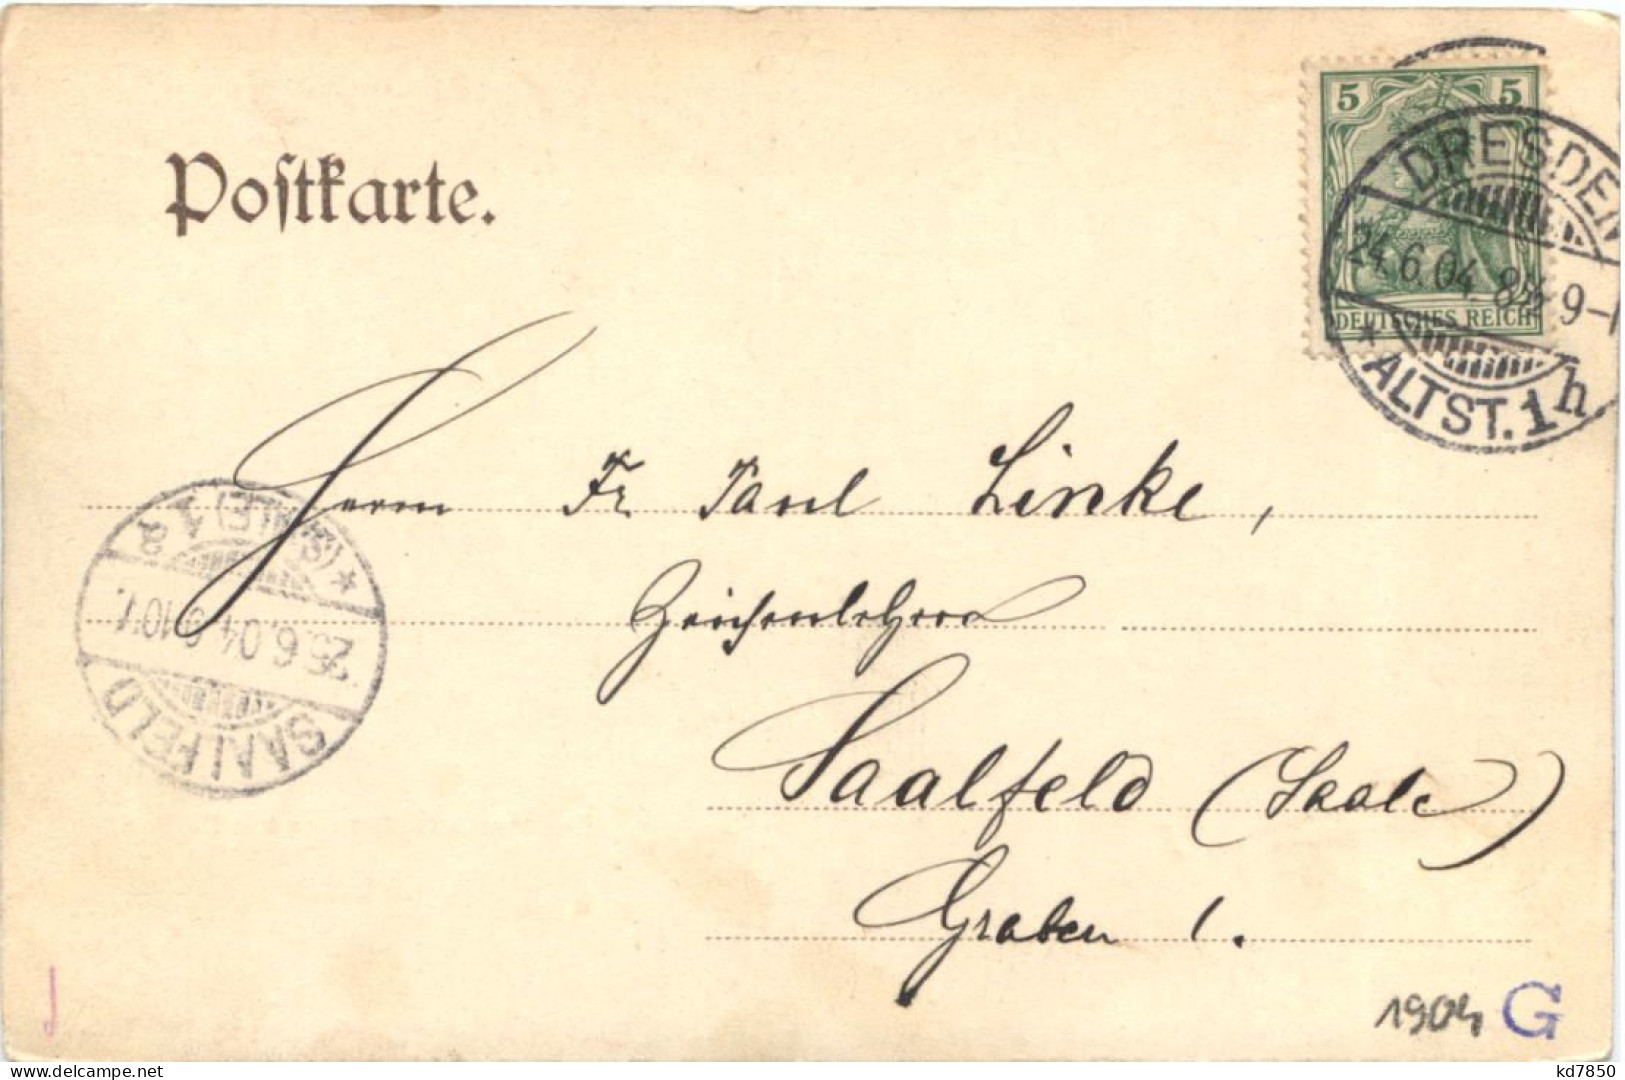 5 5
DEUTSCHES REICH
DRESDEN
24.6.04. 8½ 9-
* ALTST. 1 h
Postkarte.
Herrn Fr. Paul Linke,
Zeichenlehrer
Saalfeld (Saale)
Graben 1.
SAALFELD
25.6.04
1904 G
delcampe.net
kd7850